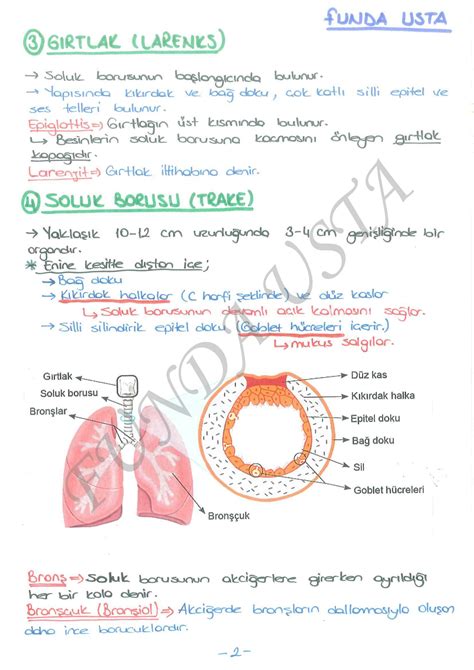 FUNDA USTA
③ GIRTLAK (LARENKS)
→ Soluk borusunun başlangıcında bulunur.
→ Yapısında kıkırdak ve bağ doku, çok katlı silli epitel ve
ses telleri bulunur.
Epiglottis ⇒ Gırtlağın üst kısmında bulunur.
↳ Besinlerin soluk borusuna kaçmasını önleyen gırtlak
kapağıdır.
Larenjit ⇒ Gırtlak iltihabına denir.
④ SOLUK BORUSU (TRAKE)
→ Yaklaşık 10-12 cm uzunluğunda 3-4 cm genişliğinde bir
organdır.
* Enine kesitte dıştan içe;
→ Bağ doku
→ Kıkırdak halkalar (C harfi şeklinde) ve düz kaslar
↳ Soluk borusunun devamlı açık kalmasını sağlar.
→ Silli silindirik epitel doku (Goblet hücreleri içerir.)
↳ mukus salgılar.
Gırtlak
Soluk borusu
Bronşlar
Bronşçuk
Düz kas
Kıkırdak halka
Epitel doku
Bağ doku
Sil
Goblet hücreleri
FUNDA USTA
Bronş ⇒ Soluk borusunun akciğerlere girerken ayrıldığı
her bir kola denir.
Bronşçuk (Bronşiol) ⇒ Akciğerde bronşların dallanmasıyla oluşan
daha ince borucuklardır.
-2-